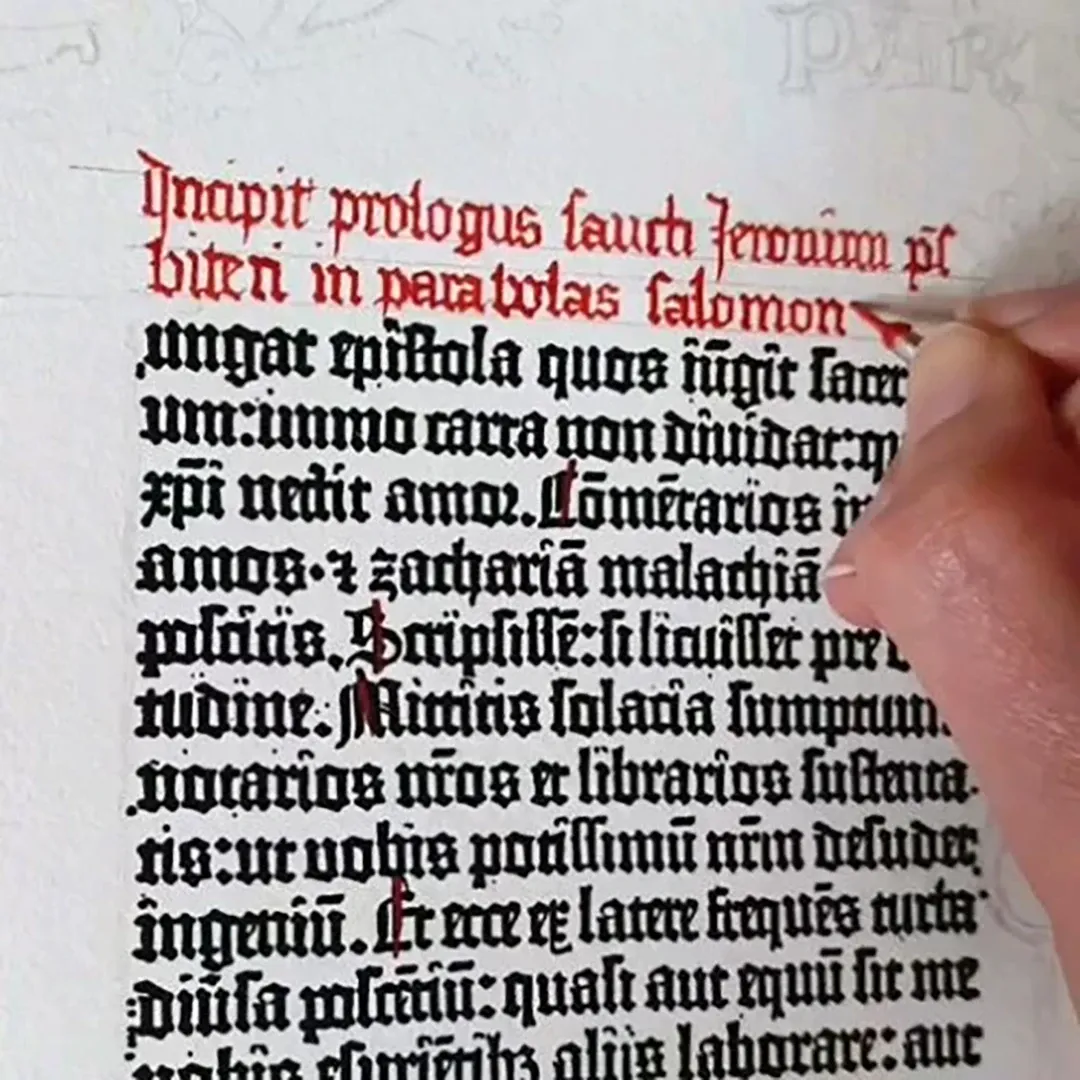 PAR
Incipit prologus sancti Jeronimi p̄s
biteri in parabolas salomon
iungat epistola quos iūgit sacer
um: immo carta non diuidat: q
xp̄i nectit amor. Cōmētarios in
amos · ⁊ zachariā malachiā
poscitis. Scripsissē: si licuisset pre
tudine. Mittitis solacia sumptuum.
notarios nr̄os et librarios sustenta-
tis: ut vobis potissimū nr̄m desudet
ingeniū. Et ecce ex latere frequēs turba
diūsa poscētiū: quasi aut equū sit me
vobis esuriētibꝫ aliis laborare: aut